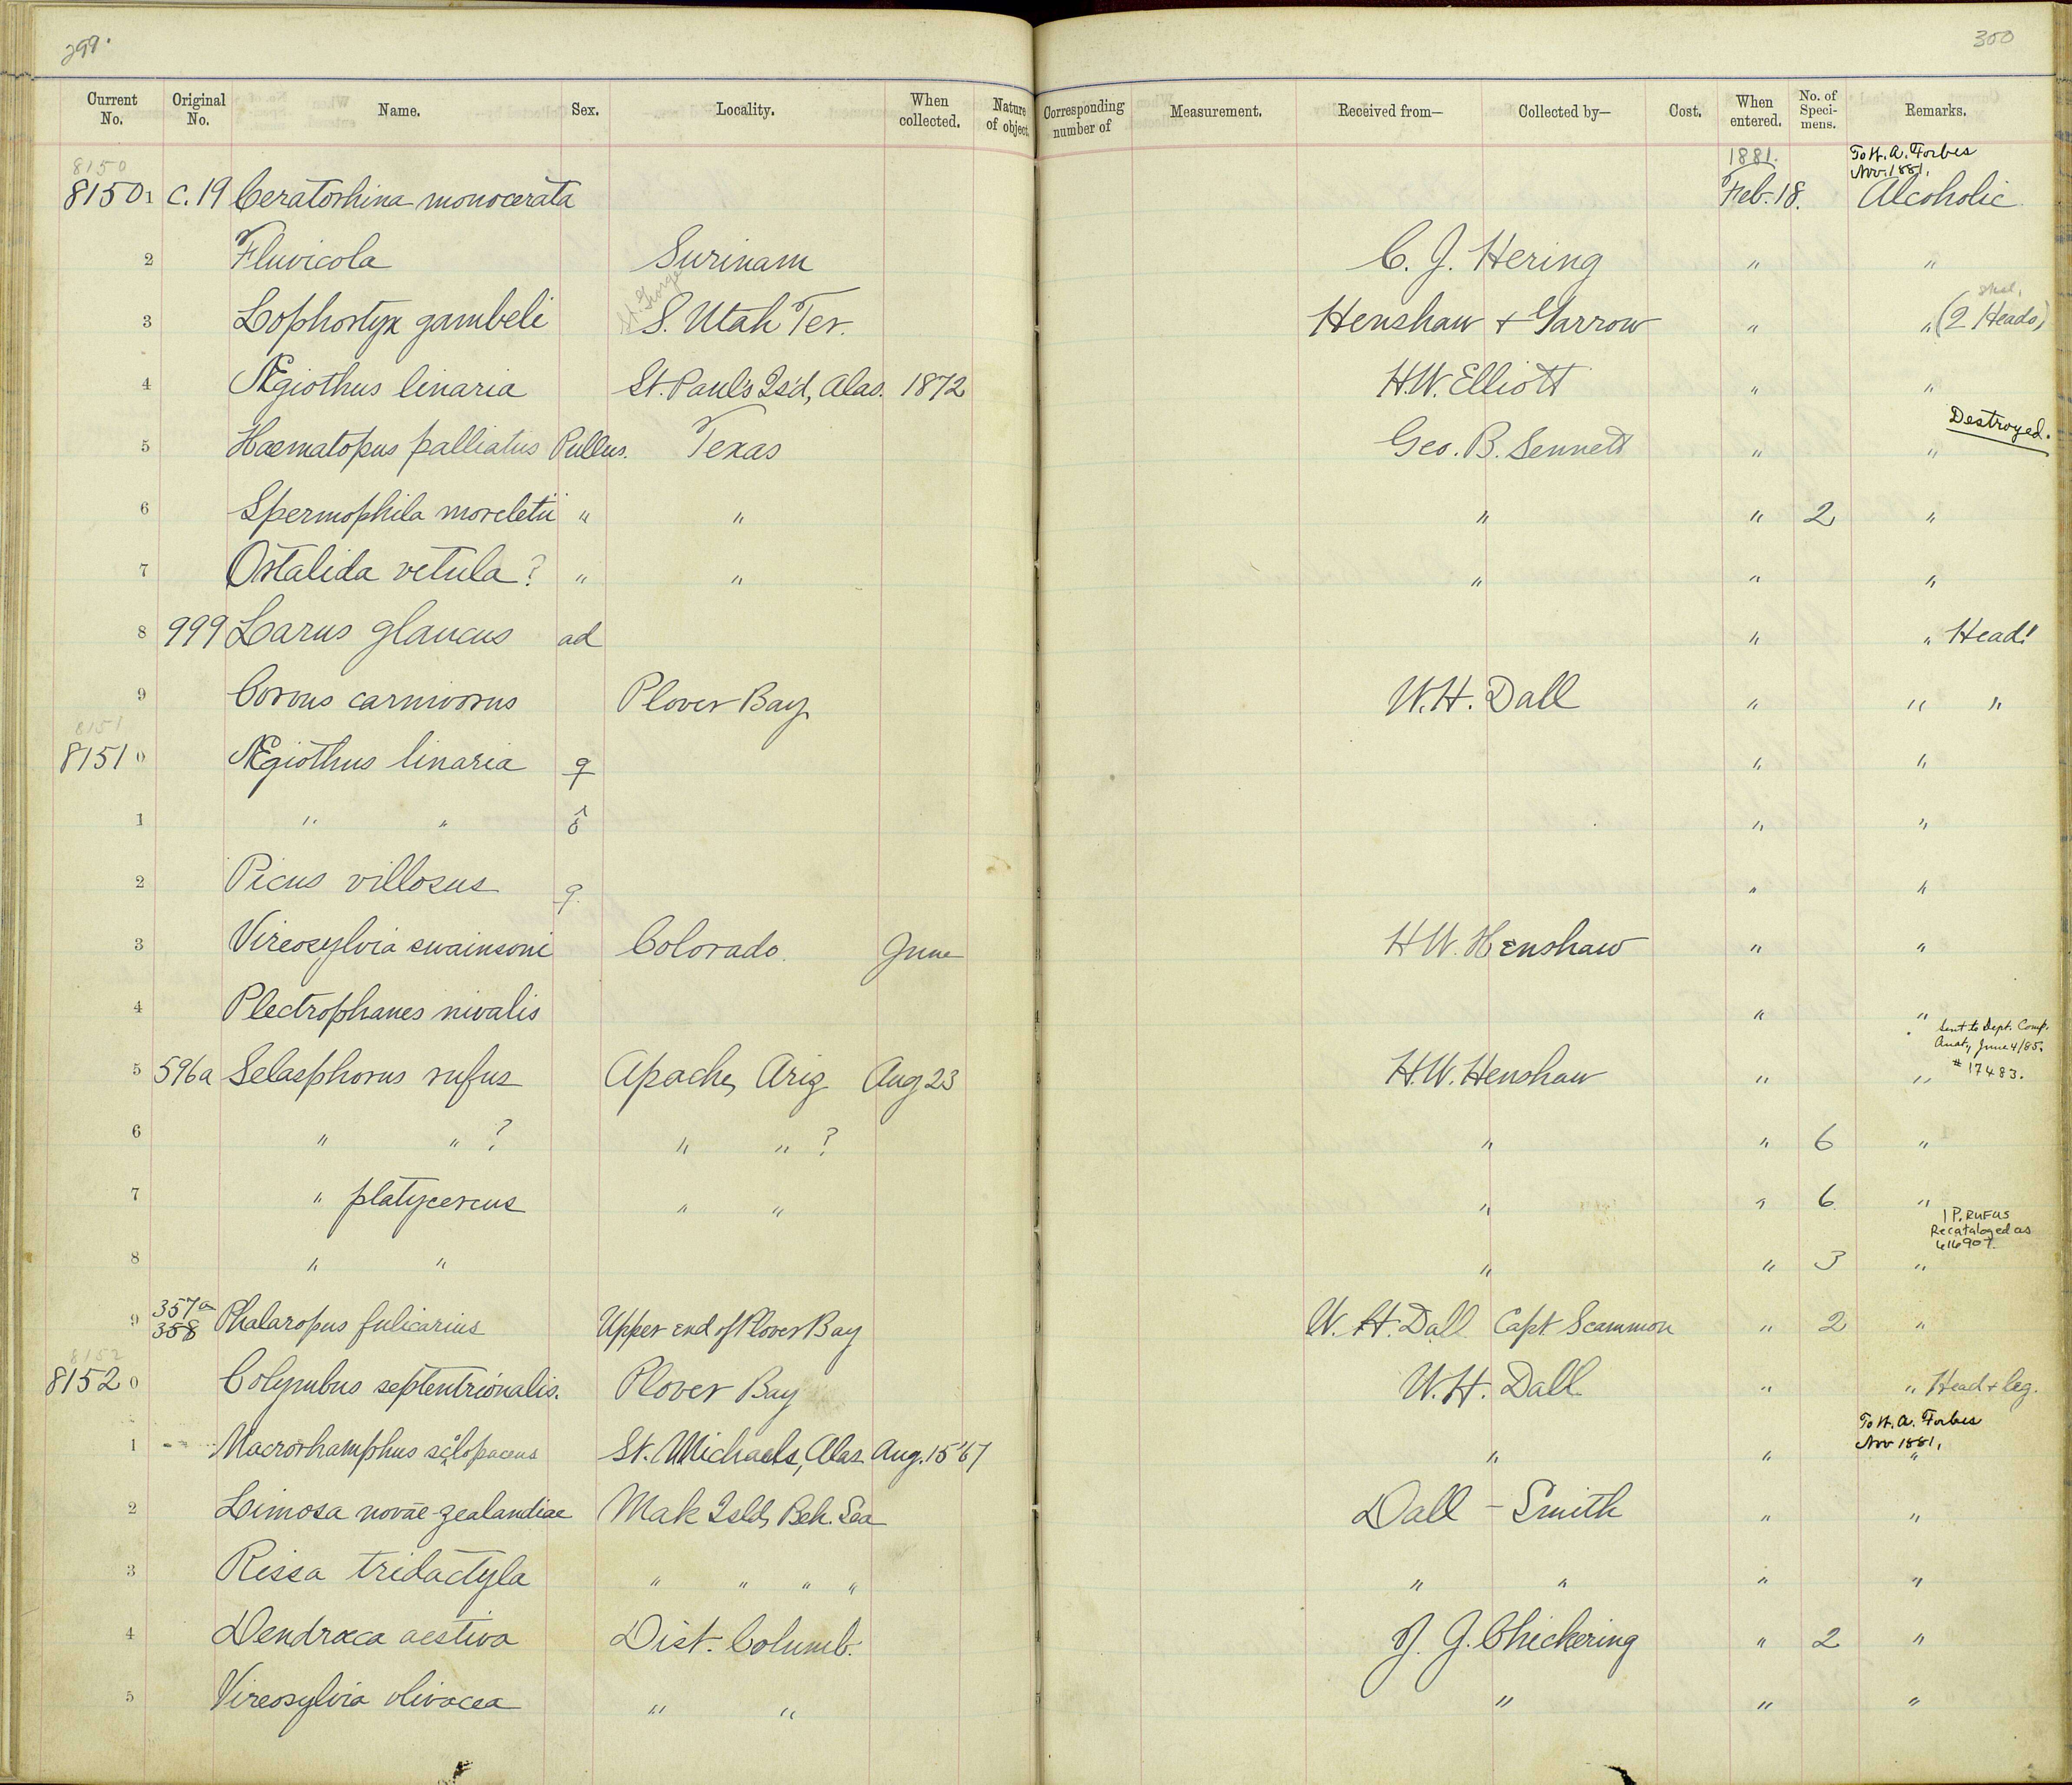 299.
300
Current No. Original No. Name. Sex. Locality. When collected. Nature of object. Corresponding number of Measurement. Received from— Collected by— Cost. When entered. No. of Specimens. Remarks.
8150 1881. To W. A. Forbes Nov. 1881.
81501 C. 19 Ceratorhina monocerata Feb. 18. Alcoholic
2 Fluvicola Surinam C. J. Hering " "
St. George Skel.
3 Lophortyx gambeli S. Utah Ter. Henshaw + Yarrow " " (2 Heads)
4 Ægiothus linaria St. Paul's Is'd, Alas. 1872 H. W. Elliott " "
Destroyed.
5 Hæmatopus palliatus Pullus. Texas Geo. B. Sennett " "
6 Spermophila moreletii " " " " 2 "
7 Ortalida vetula? " " " " "
8 999 Larus glaucus ad " " Head!
9 Corvus carnivorus Plover Bay W. H. Dall " " "
8151
81510 Ægiothus linaria ♀ " "
1 " " ♂ " "
2 Picus villosus ♀. " "
3 Vireosylvia swainsoni Colorado. June H. W. Henshaw " "
4 Plectrophanes nivalis " "
Sent to Dept. Comp. Anat., June 4/85. # 17483.
5 596a Selasphorus rufus Apache, Ariz Aug 23 H. W. Henshaw " "
6 " " ? " " ? " " 6 "
7 " platycercus " " " " 6 "
1 P. RUFUS Recataloged as 616907.
8 " " " " 3 "
9 357a 358 Phalaropus fulicarius Upper end of Plover Bay W. H. Dall Capt Scammon " 2 "
8152
81520 Colymbus septentrionalis. Plover Bay W. H. Dall " " Head + leg.
To W. A. Forbes Nov 1881.
1 Macrorhamphus scolopaceus St. Michaels, Alas. Aug. 15 '67 " " "
2 Limosa novae-zealandiae Mak Isld, Beh. Sea Dall – Smith " "
3 Rissa tridactyla " " " " " " " "
4 Dendræca aestiva Dist. Columb. J. J. Chickering " 2 "
5 Vireosylvia olivacea " " " " "